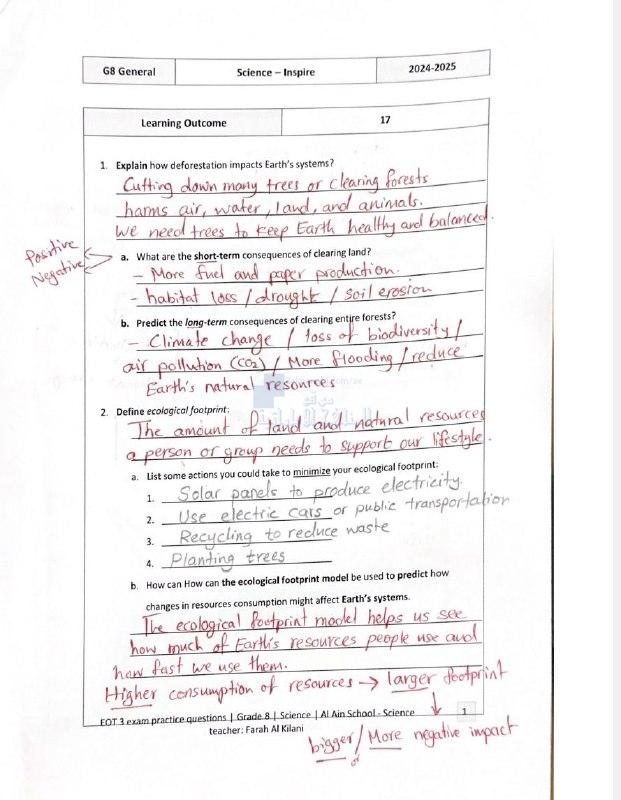 G8 General Science – Inspire 2024-2025
Learning Outcome 17
1. Explain how deforestation impacts Earth's systems?
Cutting down many trees or clearing forests
harms air, water, land, and animals.
we need trees to keep Earth healthy and balanced.
Positive
Negative
a. What are the short-term consequences of clearing land?
- More fuel and paper production.
- habitat loss / drought / soil erosion
b. Predict the long-term consequences of clearing entire forests?
- Climate change / loss of biodiversity /
air pollution (CO2) / More flooding / reduce
Earth's natural resources
2. Define ecological footprint:
The amount of land and natural resources
a person or group needs to support our lifestyle.
a. List some actions you could take to minimize your ecological footprint:
1. Solar panels to produce electricity.
2. Use electric cars or public transportation
3. Recycling to reduce waste
4. Planting trees
b. How can How can the ecological footprint model be used to predict how
changes in resources consumption might affect Earth's systems.
The ecological footprint model helps us see
how much of Earth's resources people use and
how fast we use them.
Higher consumption of resources → larger footprint
EOT 3 exam practice questions | Grade 8 | Science | Al Ain School - Science 1
teacher: Farah Al Kilani
bigger / More negative impact
or